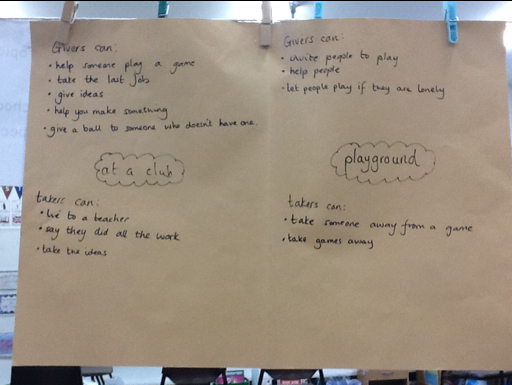 Givers can:
• help someone play a game
• take the last job
• give ideas
• help you make something
• give a ball to someone who doesn't have one.
at a club
takers can:
• lie to a teacher
• say they did all the work
• take the ideas
Givers can:
• invite people to play
• help people
• let people play if they are lonely
playground
takers can:
• take someone away from a game
• take games away